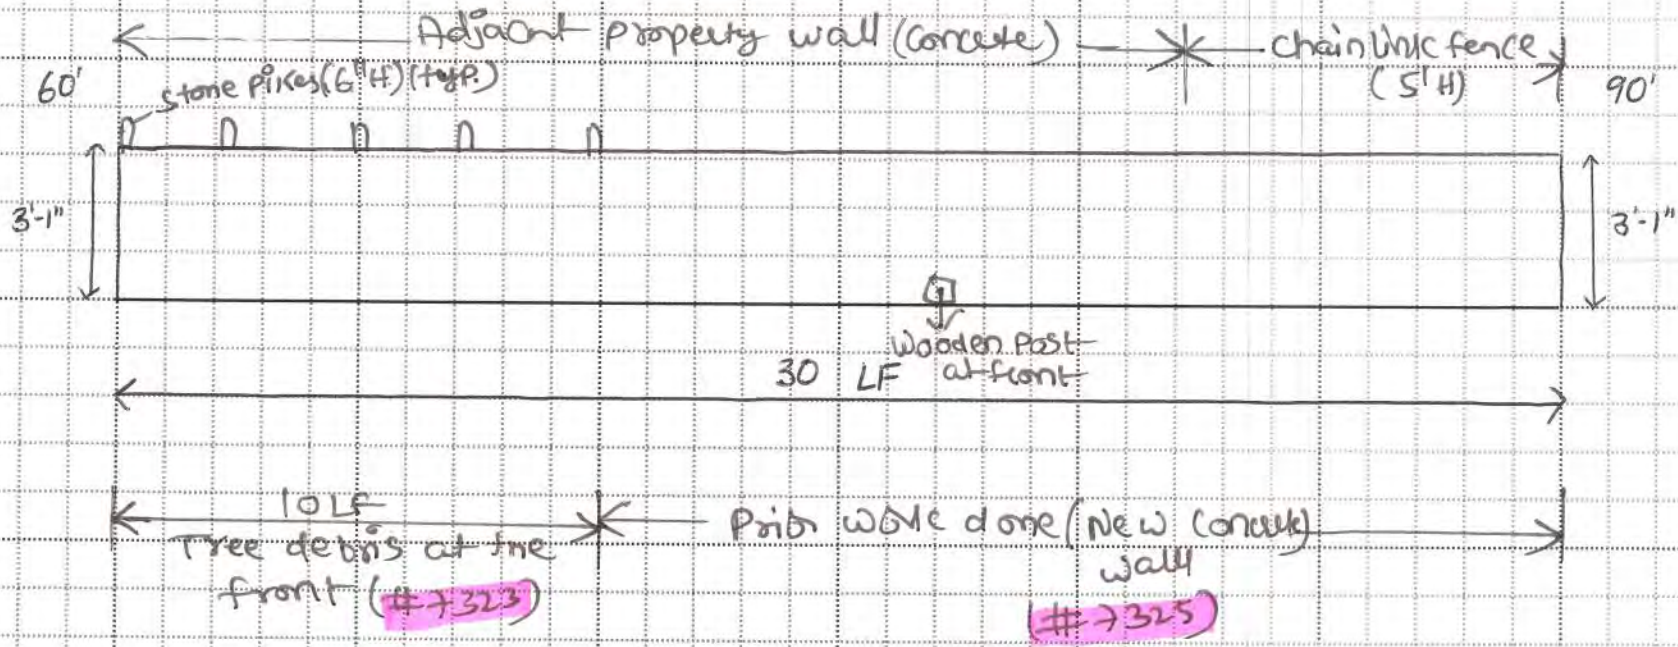 Adjacent property wall (Concrete)
chain link fence
(5'H)
60'
stone pikes (6"H) (typ.)
90'
3'-1"
3'-1"
Wooden Post
at front
30 LF
10 LF
Tree debris at the
front (#7323)
Prior work done (New Concrete)
wall
(#7325)